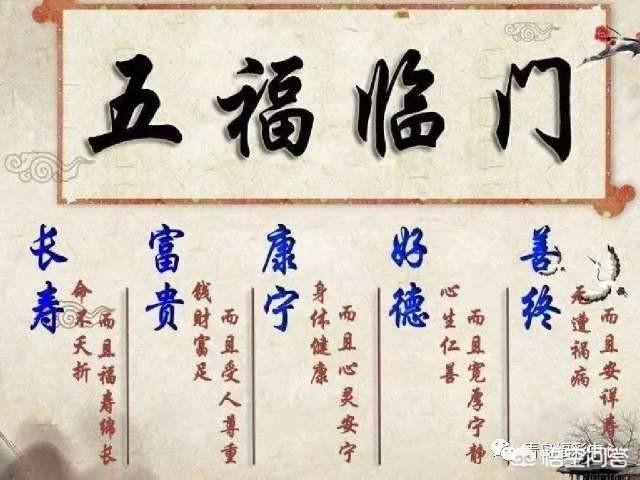 五福临门
长寿
命不夭折
而且福寿绵长
富贵
钱财富足
而且受人尊重
康宁
身体健康
而且心灵安宁
好德
心生仁善
而且宽厚宁静
善终
无遭祸病
而且安详
悟空问答